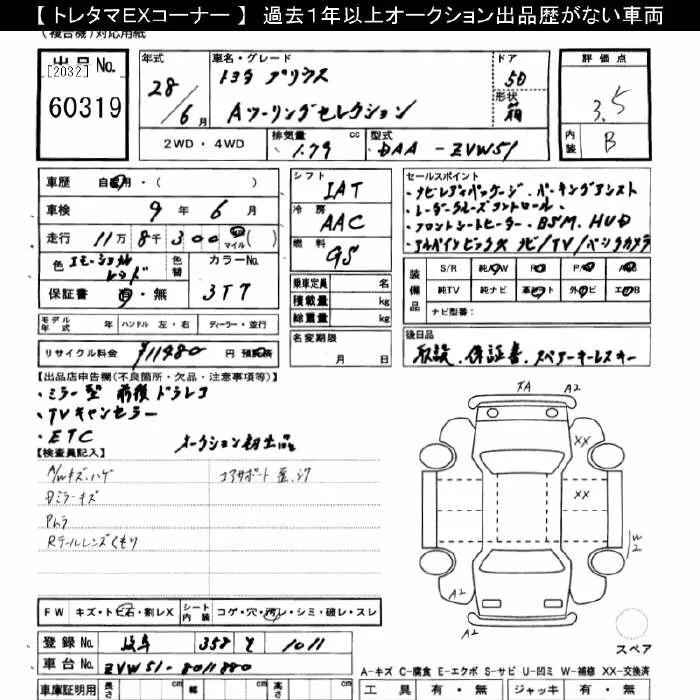 【 トレタマＥＸコーナー 】 過去１年以上オークション出品歴がない車両
(複合機)対応用紙
出品 No.
[2032]
60319
年式
28/6月
車名・グレード
トヨタ プリウス
Aツーリングセレクション
ドア
5D
形状
箱
評価点
3.5
内装
B
2WD・4WD
排気量 1.79 cc
型式 DAA - ZVW51
車歴 自家用・( )
車検 9年 6月
走行 11万 8千 300 マイル( )
色 エモーショナルレッド
色替
カラーNo. 3T7
保証書 有・無
シフト IAT
冷房 AAC
燃料 GS
乗車定員 名
積載量 kg
総重量 kg
セールスポイント
・ナビレディパッケージ・パーキングアシスト
・レーダークルーズコントロール・
・フロントシートヒーター・BSM・HUD
・アルパインビッグX ナビ/TV/バックカメラ
装備品
S/R 純A/W P/S P/W A/B
純TV 純ナビ 革シート 外ナビ エアB
ナビ型番:
モデル年式 年 ハンドル 左・右 ディーラー・並行
リサイクル料金 ¥11480 円 預託済
名変期限 月 日
後日品
取説.保証書.スペアーキーレスキー
【出品店申告欄(不良箇所・欠品・注意事項等)】
・ミラー型 前後ドラレコ
・TVキャンセラー
・ETC
オークション初出品
【検査員記入】
A/Wキズ.ハゲ
コアサポート歪.シワ
Dミラーキズ
Rテールレンズくもり
FW キズ・トビ石・割レX
シート内装 コゲ・穴・汚レ・シミ・破レ・スレ
登録 No. 岐阜 358 と 1011
車台 No. ZVW51-8011880
車庫証明用 長さ cm 幅 cm 高さ cm
A2
XX
XX
W2
A2
A2
スペア
A-キズ C-腐食 E-エクボ S-サビ U-凹ミ W-補修 XX-交換済
工具 有・無 ジャッキ 有・無